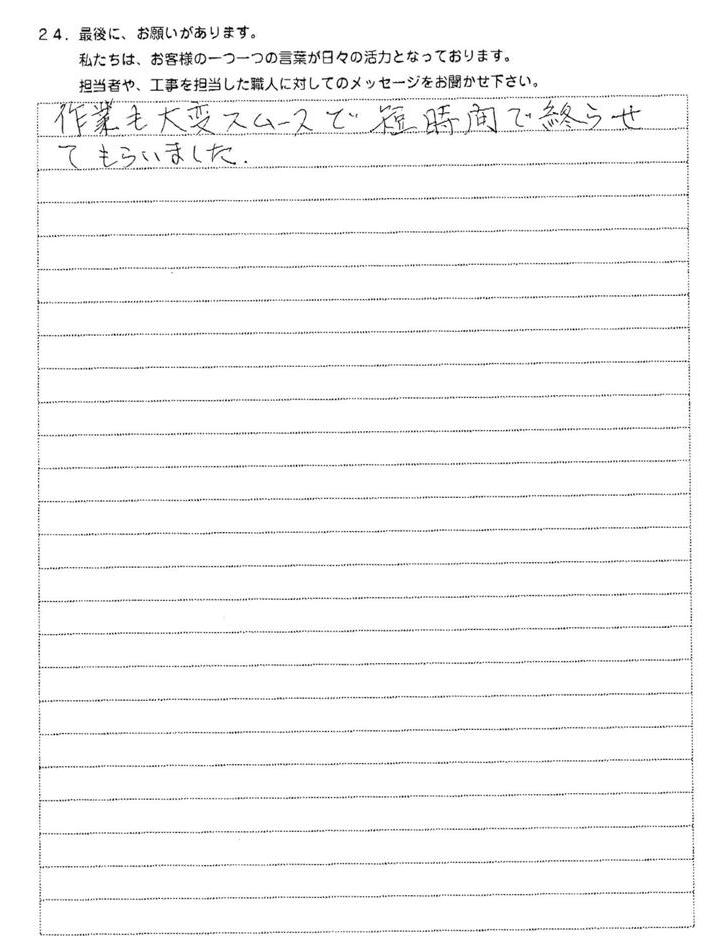 24. 最後に、お願いがあります。
私たちは、お客様の一つ一つの言葉が日々の活力となっております。
担当者や、工事を担当した職人に対してのメッセージをお聞かせ下さい。
作業も大変スムースで短時間で終らせ
てもらいました.